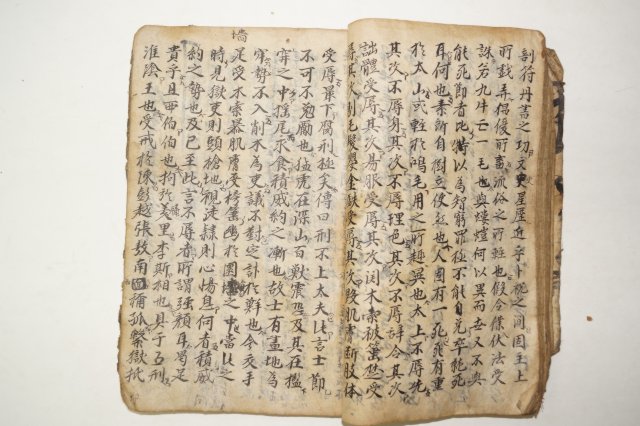 剖符丹書之功文史星曆近乎卜祝之間固主上
所戱弄倡優所畜流俗之所輕也假令僕伏法受
誅若九牛亡一毛也與螻蟻何以異而世又不與
能死節者比特以爲智窮罪極不能自免卒就死
耳何也素所自樹立使然也人固有一死死有重
於太山或輕於鴻毛用之所趣異也太上不辱先
其次不辱身其次不辱理色其次不辱辭令其次
詘體受辱其次易服受辱其次関木索被箠楚受
辱其次剔毛髮嬰金鐵受辱其次毁肌膚斷肢体
墻
受辱最下腐刑極矣傳曰刑不上太夫此言士節
不可不勉勵也猛虎在深山百獸震恐及其在檻
穽之中搖尾求食積威約之漸也故士有畫地爲
牢勢不入削木爲吏議不對定計於鮮也今交手
足受木索暴肌膚受榜箠幽於圜墻之中當此之
時見獄吏則頭槍地視徒隸則心惕息何者積威
約之勢也及已至此言不辱者所謂强顔耳曷足
貴乎且西伯伯也拘於羑里李斯相也具于五刑
淮陰王也受械於陳彭越張敖南面稱孤繫獄抵